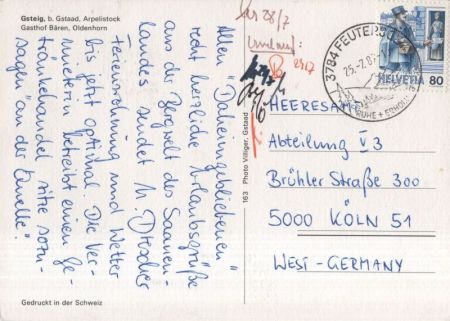 Gsteig, b. Gstaad, Arpelistock
Gasthof Bären, Oldenhorn
Allen "Daheimgebliebenen"
recht herzliche Urlaubsgrüße
aus der Bergwelt des Saanen-
landes sendet H. Drescher
Ferienwohnung und Wetter
bis jetzt optimal. Die Ver-
mieterin betreibt einen Ge-
tränkehandel, sitze sozu-
sagen "an der Quelle".
163 Photo Villiger, Gstaad
Gedruckt in der Schweiz
28/7
29/7
3784 FEUTERSOEY
25.-7.8
RUHE + ERHOLUNG
HELVETIA 80
HEERESAMT
Abteilung V3
Brühler Straße 300
5000 KÖLN 51
WEST-GERMANY